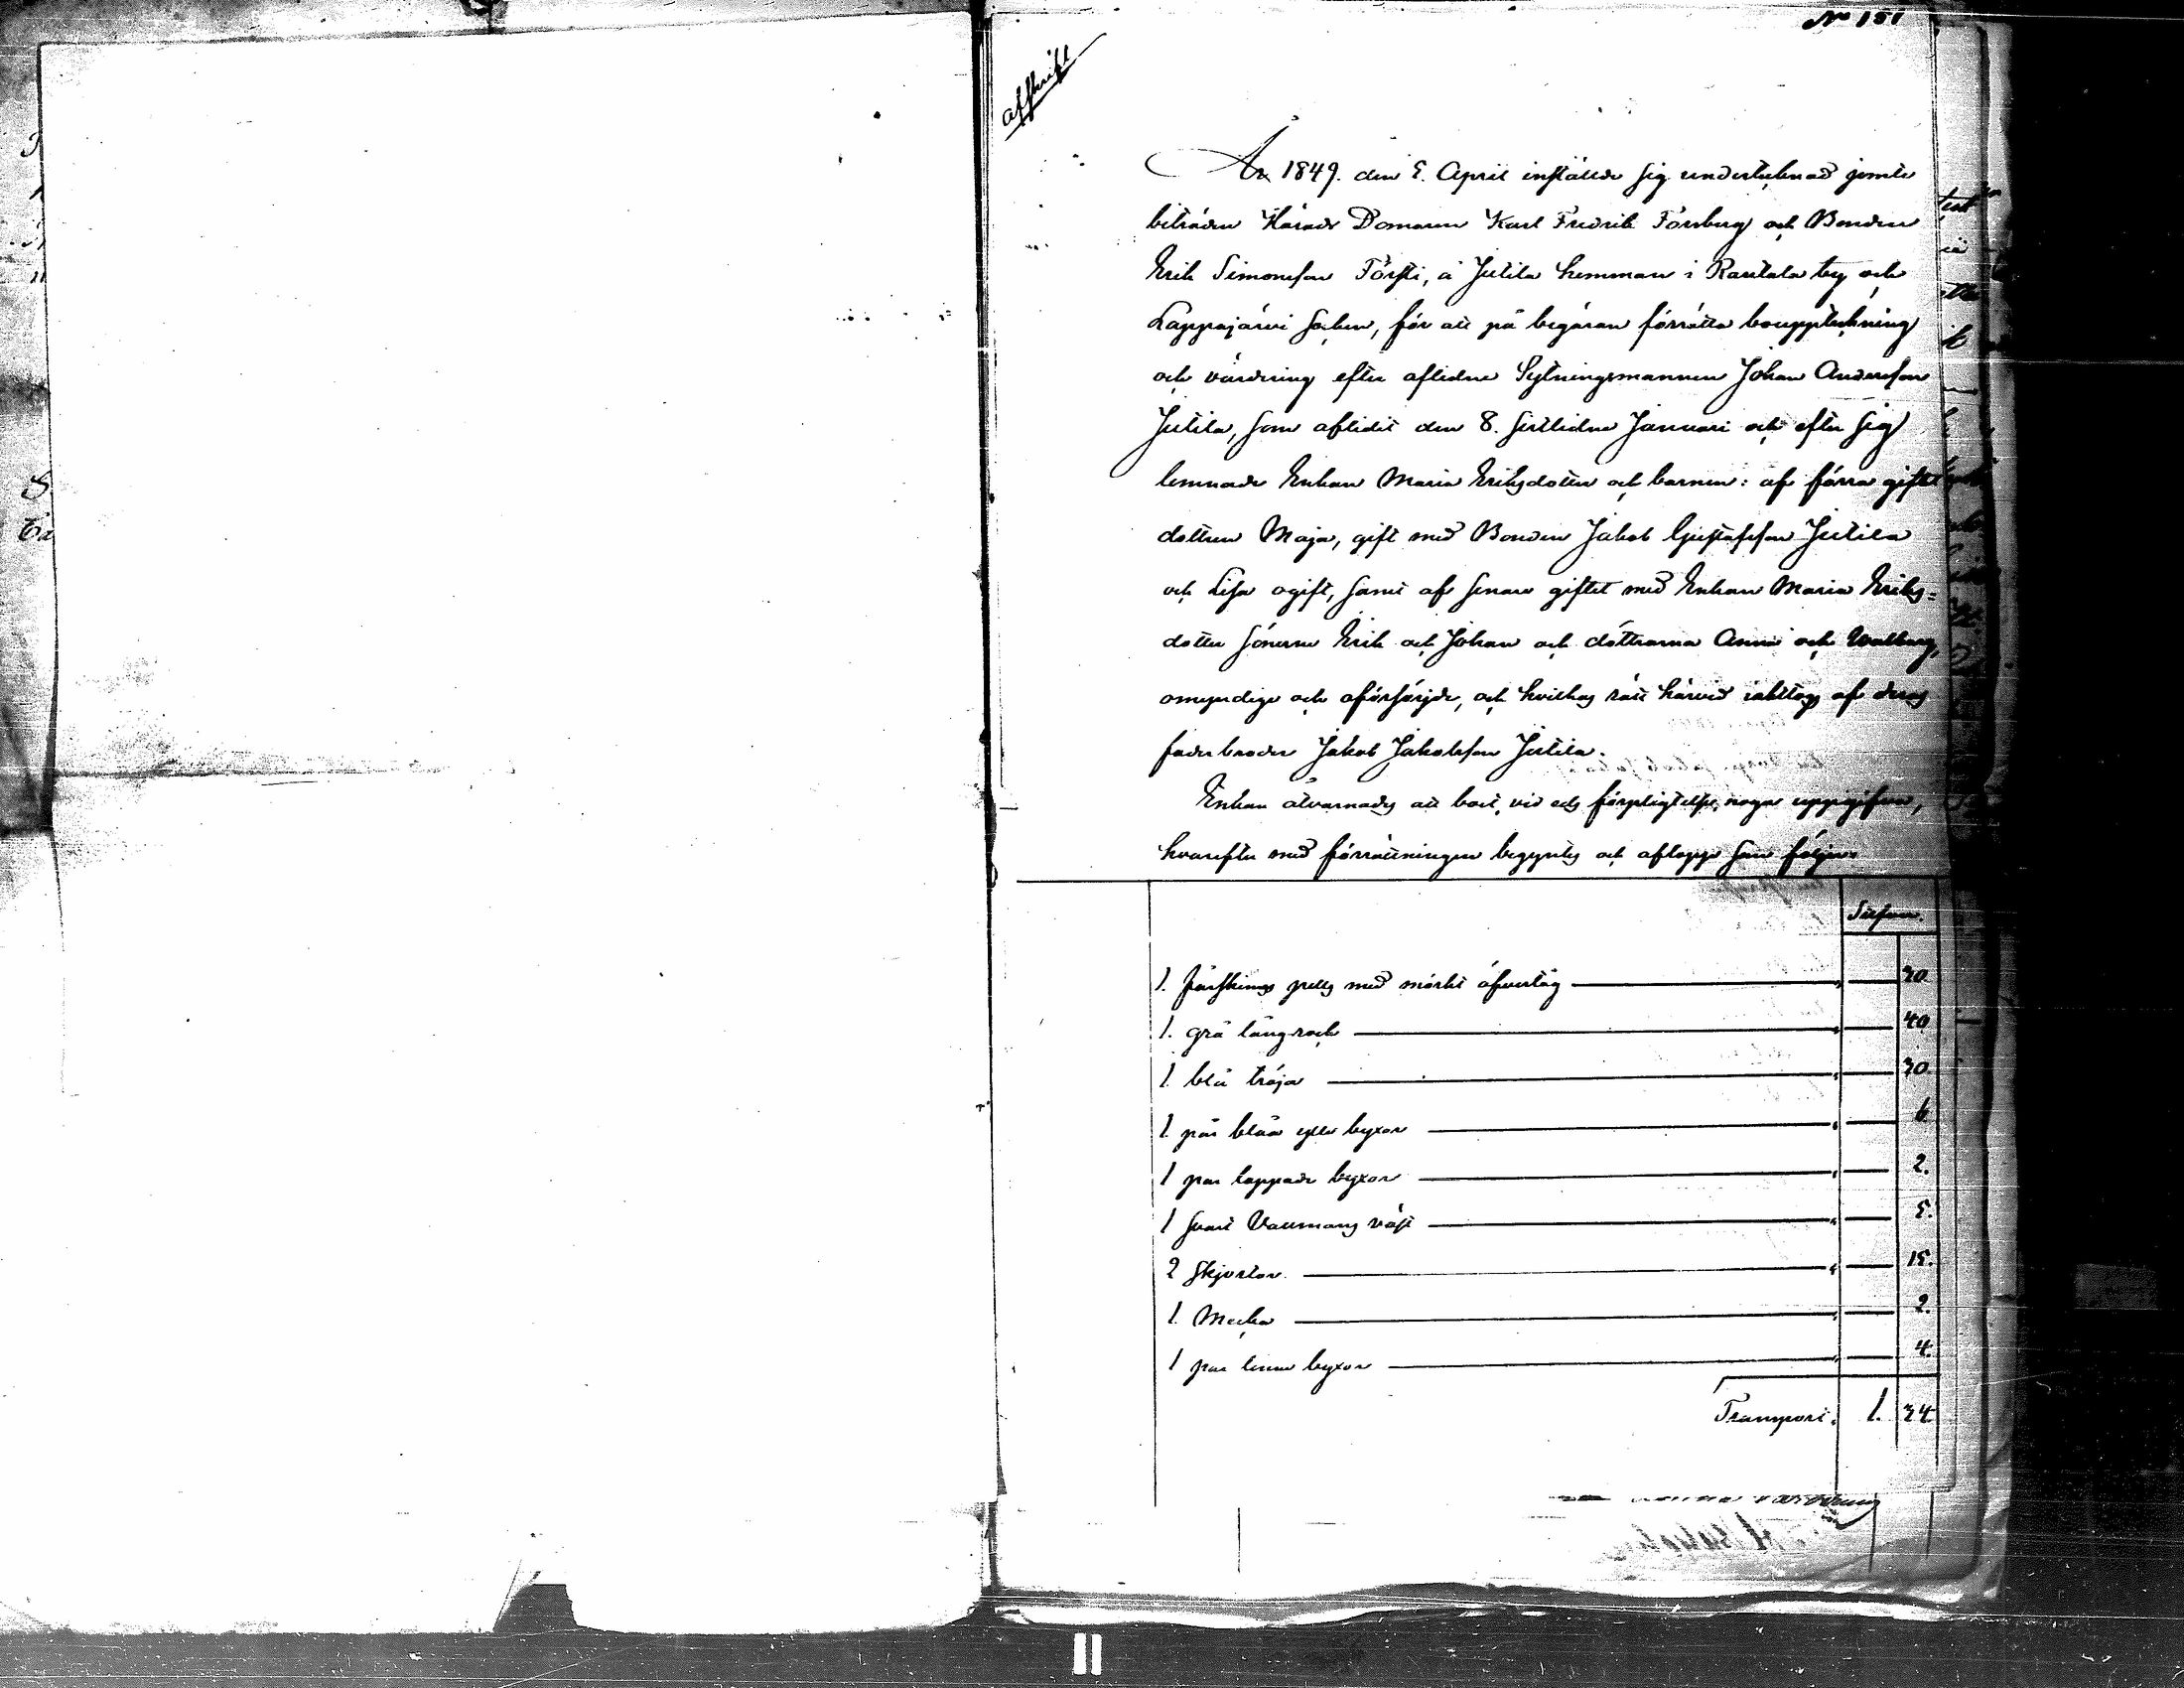 No 151
Afskrift
År 1849. den 5. April inställde sig undertecknad jemte
biträden Härads Domaren Karl Fredrik Forsberg och Bonden
Erik Simonsson Försti, å Jutila hemman i Rantala by och
Lappajärvi socken, för att på begäran förrätta bouppteckning
och värdering efter aflidne Sytningsmannen Johan Andersson
Jutila, som aflidit den 8. sistlidne Januari och efter sig
lemnade Enkan Maria Eriksdotter och barnen: af förra giftet
dottren Maja, gift med Bonden Jakob Gustafsson Jutila
och Lisa ogift, samt af senare giftet med Enkan Maria Eriks=
dotter sönerne Erik och Johan och döttrarna Anna och Walborg,
omyndige och oförsörjde, och hvilkas rätt härvid iakttogs af deras
faderbroder Jakob Jakobsson Jutila.
Enkan åtvarnades att boet, vid eds förpligtelse, noga uppgifva,
hvarefter med förrättningen begyntes och aflopp som följer:
Silfver.
1. fårskinns pels med mörkt öfvertåg 30.
1. grå långrock 40
1 blå tröja 30.
1 par blåa ylle byxor 6
1 par lappade byxor 2.
1 svart Vallmans väst 5.
2 skjortor 15.
1. Mecka 2.
1 par linne byxor 4.
Transport. 1. 34